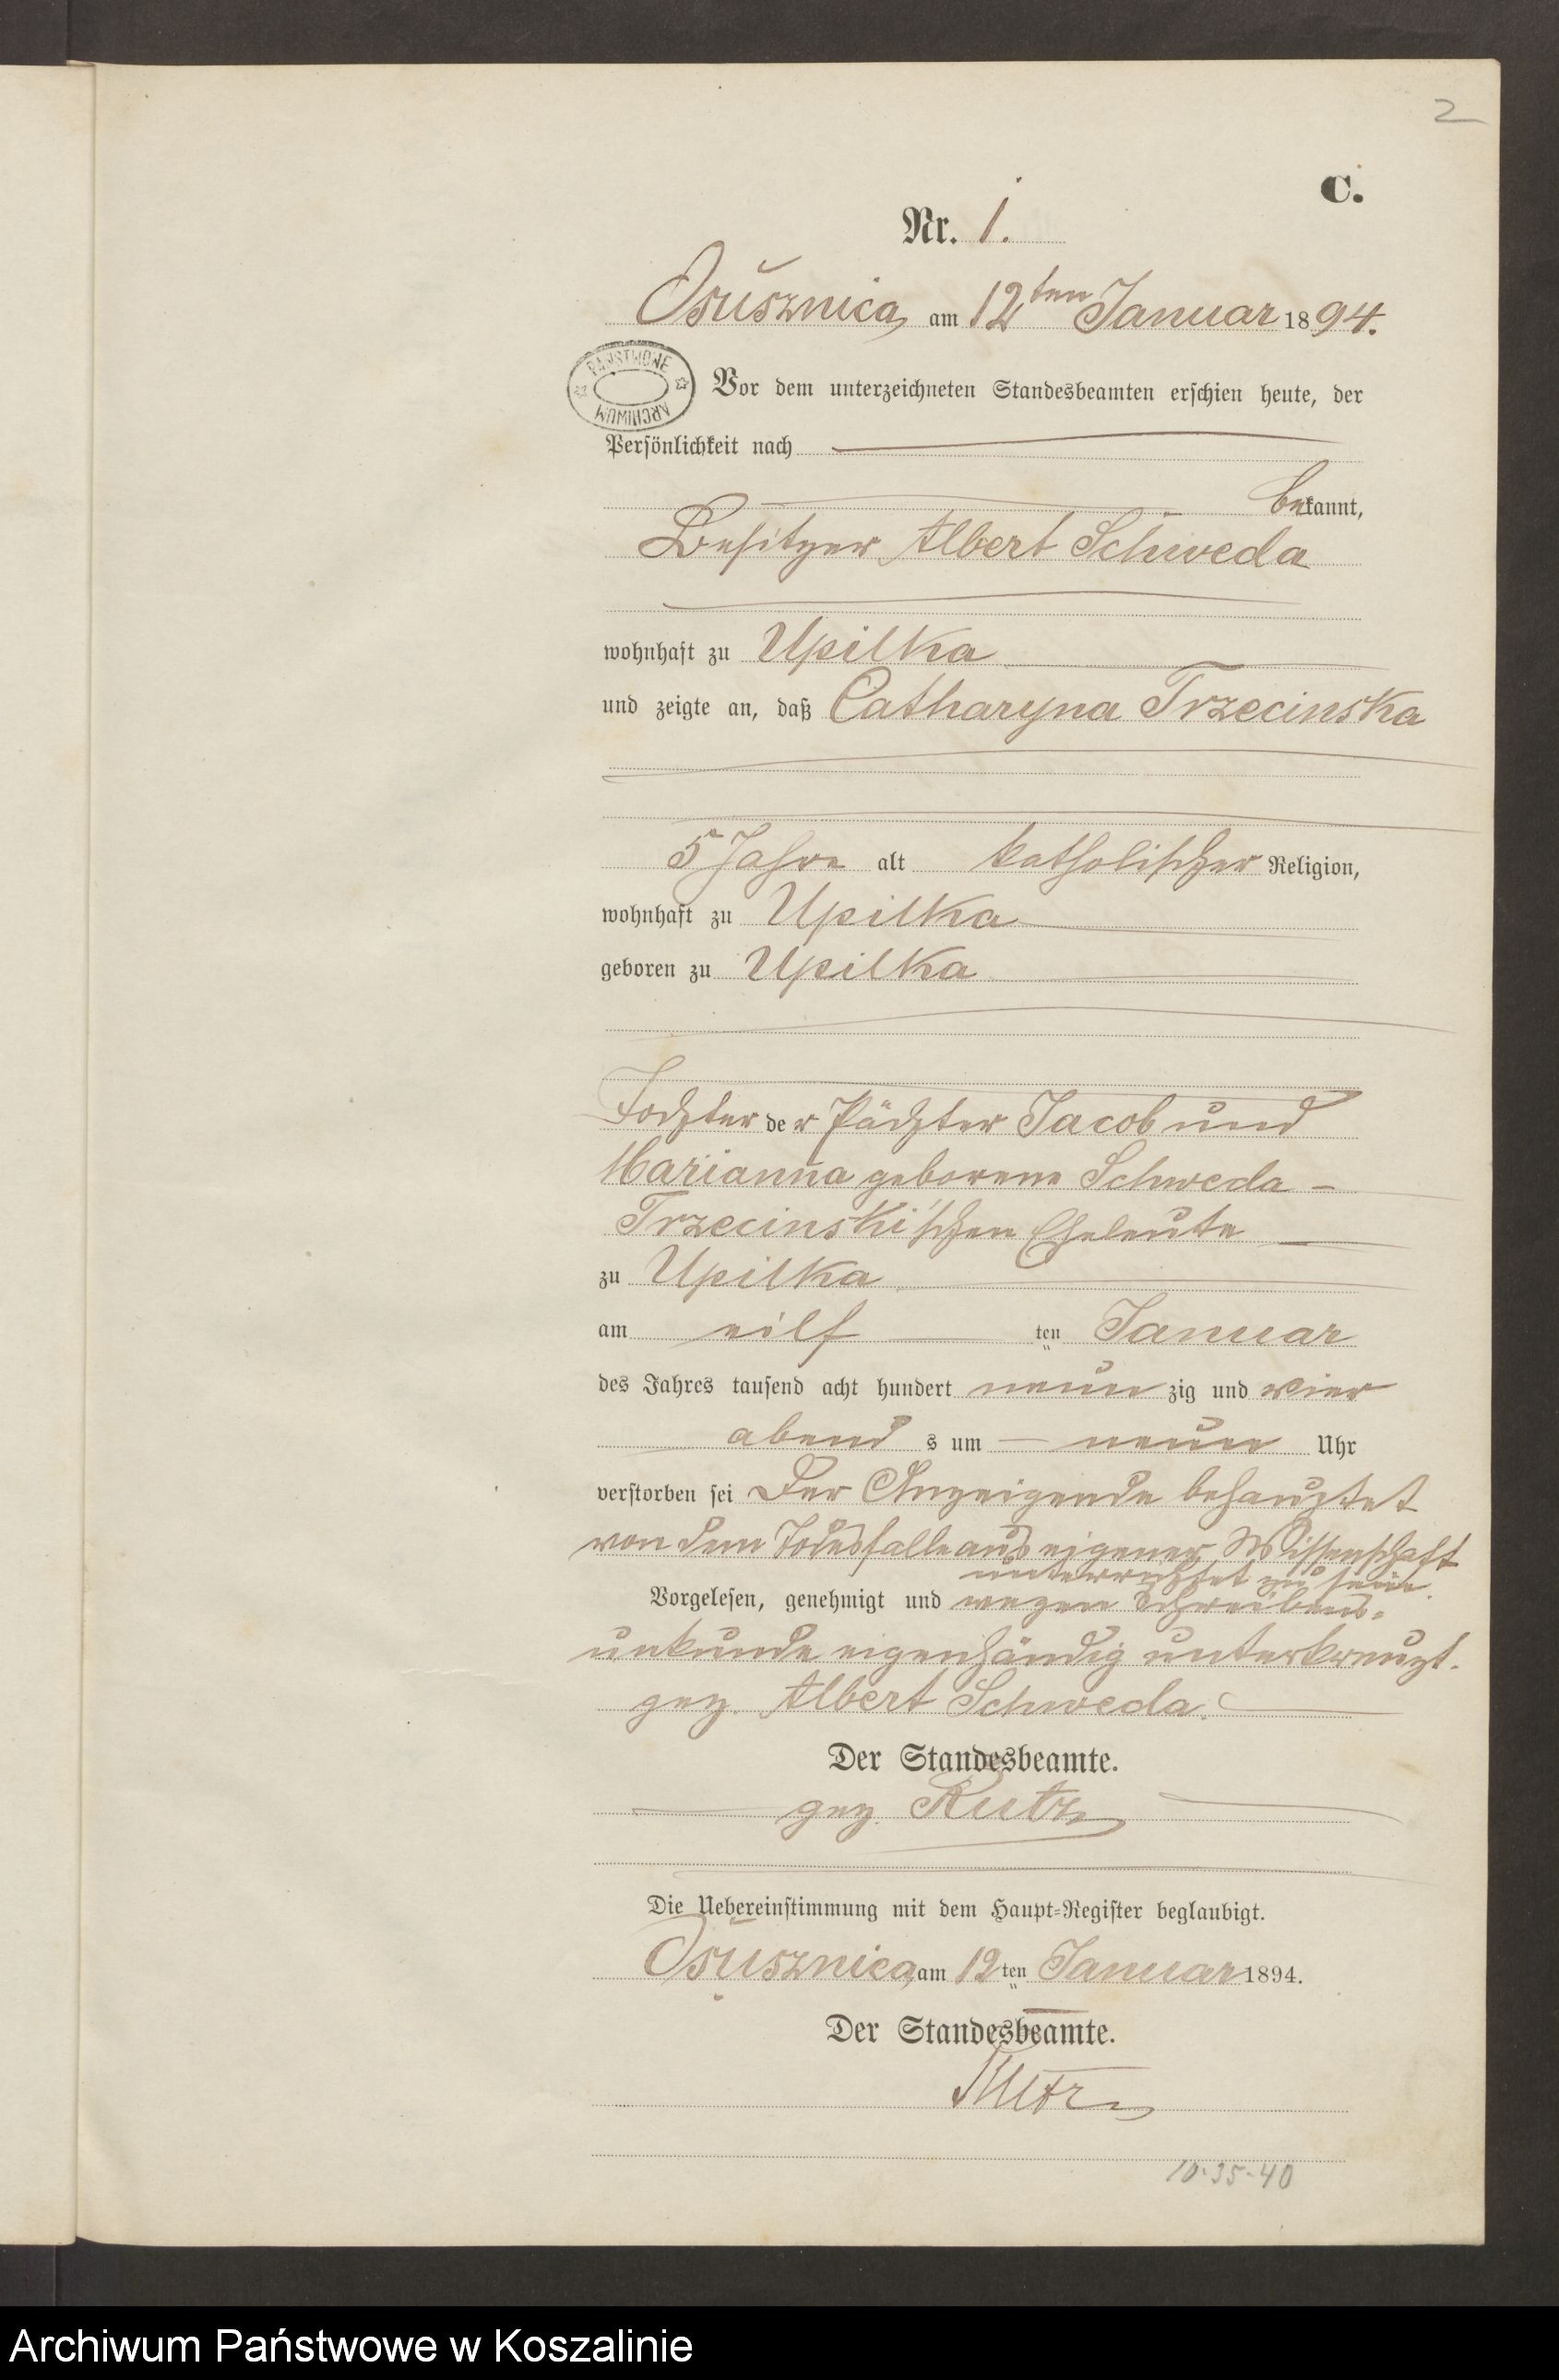 2
C.
Nr. 1.
Osusznica, am 12ten Januar 1894.
PAŃSTWOWE ARCHIWUM
Vor dem unterzeichneten Standesbeamten erschien heute, der
Persönlichkeit nach
bekannt,
Besitzer Albert Schweda
wohnhaft zu Upilka
und zeigte an, daß Catharyna Trzecinska
5 Jahre alt katholischer Religion,
wohnhaft zu Upilka
geboren zu Upilka
Tochter der Pächter Jacob und
Marianna geborene Schweda -
Trzecinski'schen Eheleute
zu Upilka
am eilf ten Januar
des Jahres tausend acht hundert neun zig und vier
abend s um neun Uhr
verstorben sei Der Anzeigende behauptet
von dem Todesfalle aus eigener Wissenschaft
unterrichtet zu sein.
Vorgelesen, genehmigt und wegen Schreibens-
unkunde eigenhändig unterkreuzt.
gez. Albert Schweda.
Der Standesbeamte.
gez. Rutz
Die Uebereinstimmung mit dem Haupt-Register beglaubigt.
Osusznica, am 12ten Januar 1894.
Der Standesbeamte.
Rutz
10.35-40
Archiwum Państwowe w Koszalinie